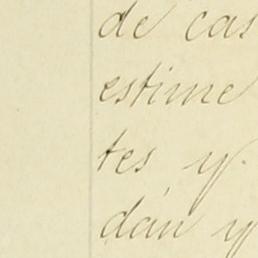 de cas
estime
tes y
dan y